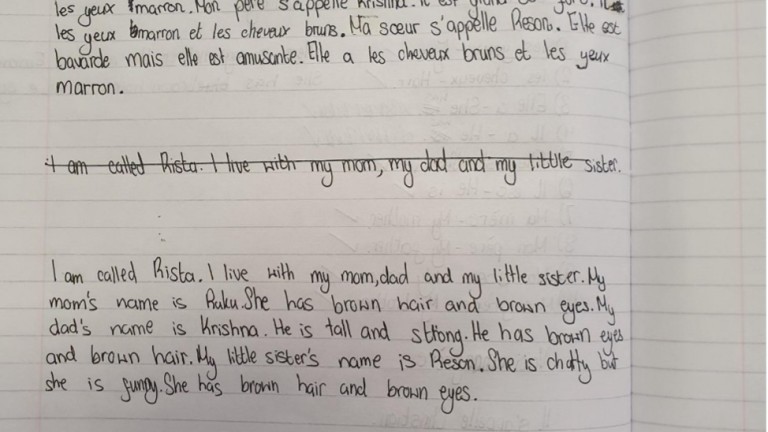 les yeux marron. Mon père s'appelle Krishna. Il est grand
les yeux marron et les cheveux bruns. Ma sœur s'appelle Reson. Elle est
bavarde mais elle est amusante. Elle a les cheveux bruns et les yeux
marron.
I am called Rista. I live with my mom, my dad and my little sister.
I am called Rista. I live with my mom,dad and my little sister. My
mom's name is Raku. She has brown hair and brown eyes. My
dad's name is Krishna. He is tall and strong. He has brown eyes
and brown hair. My little sister's name is Reson. She is chatty but
she is funny. She has brown hair and brown eyes.